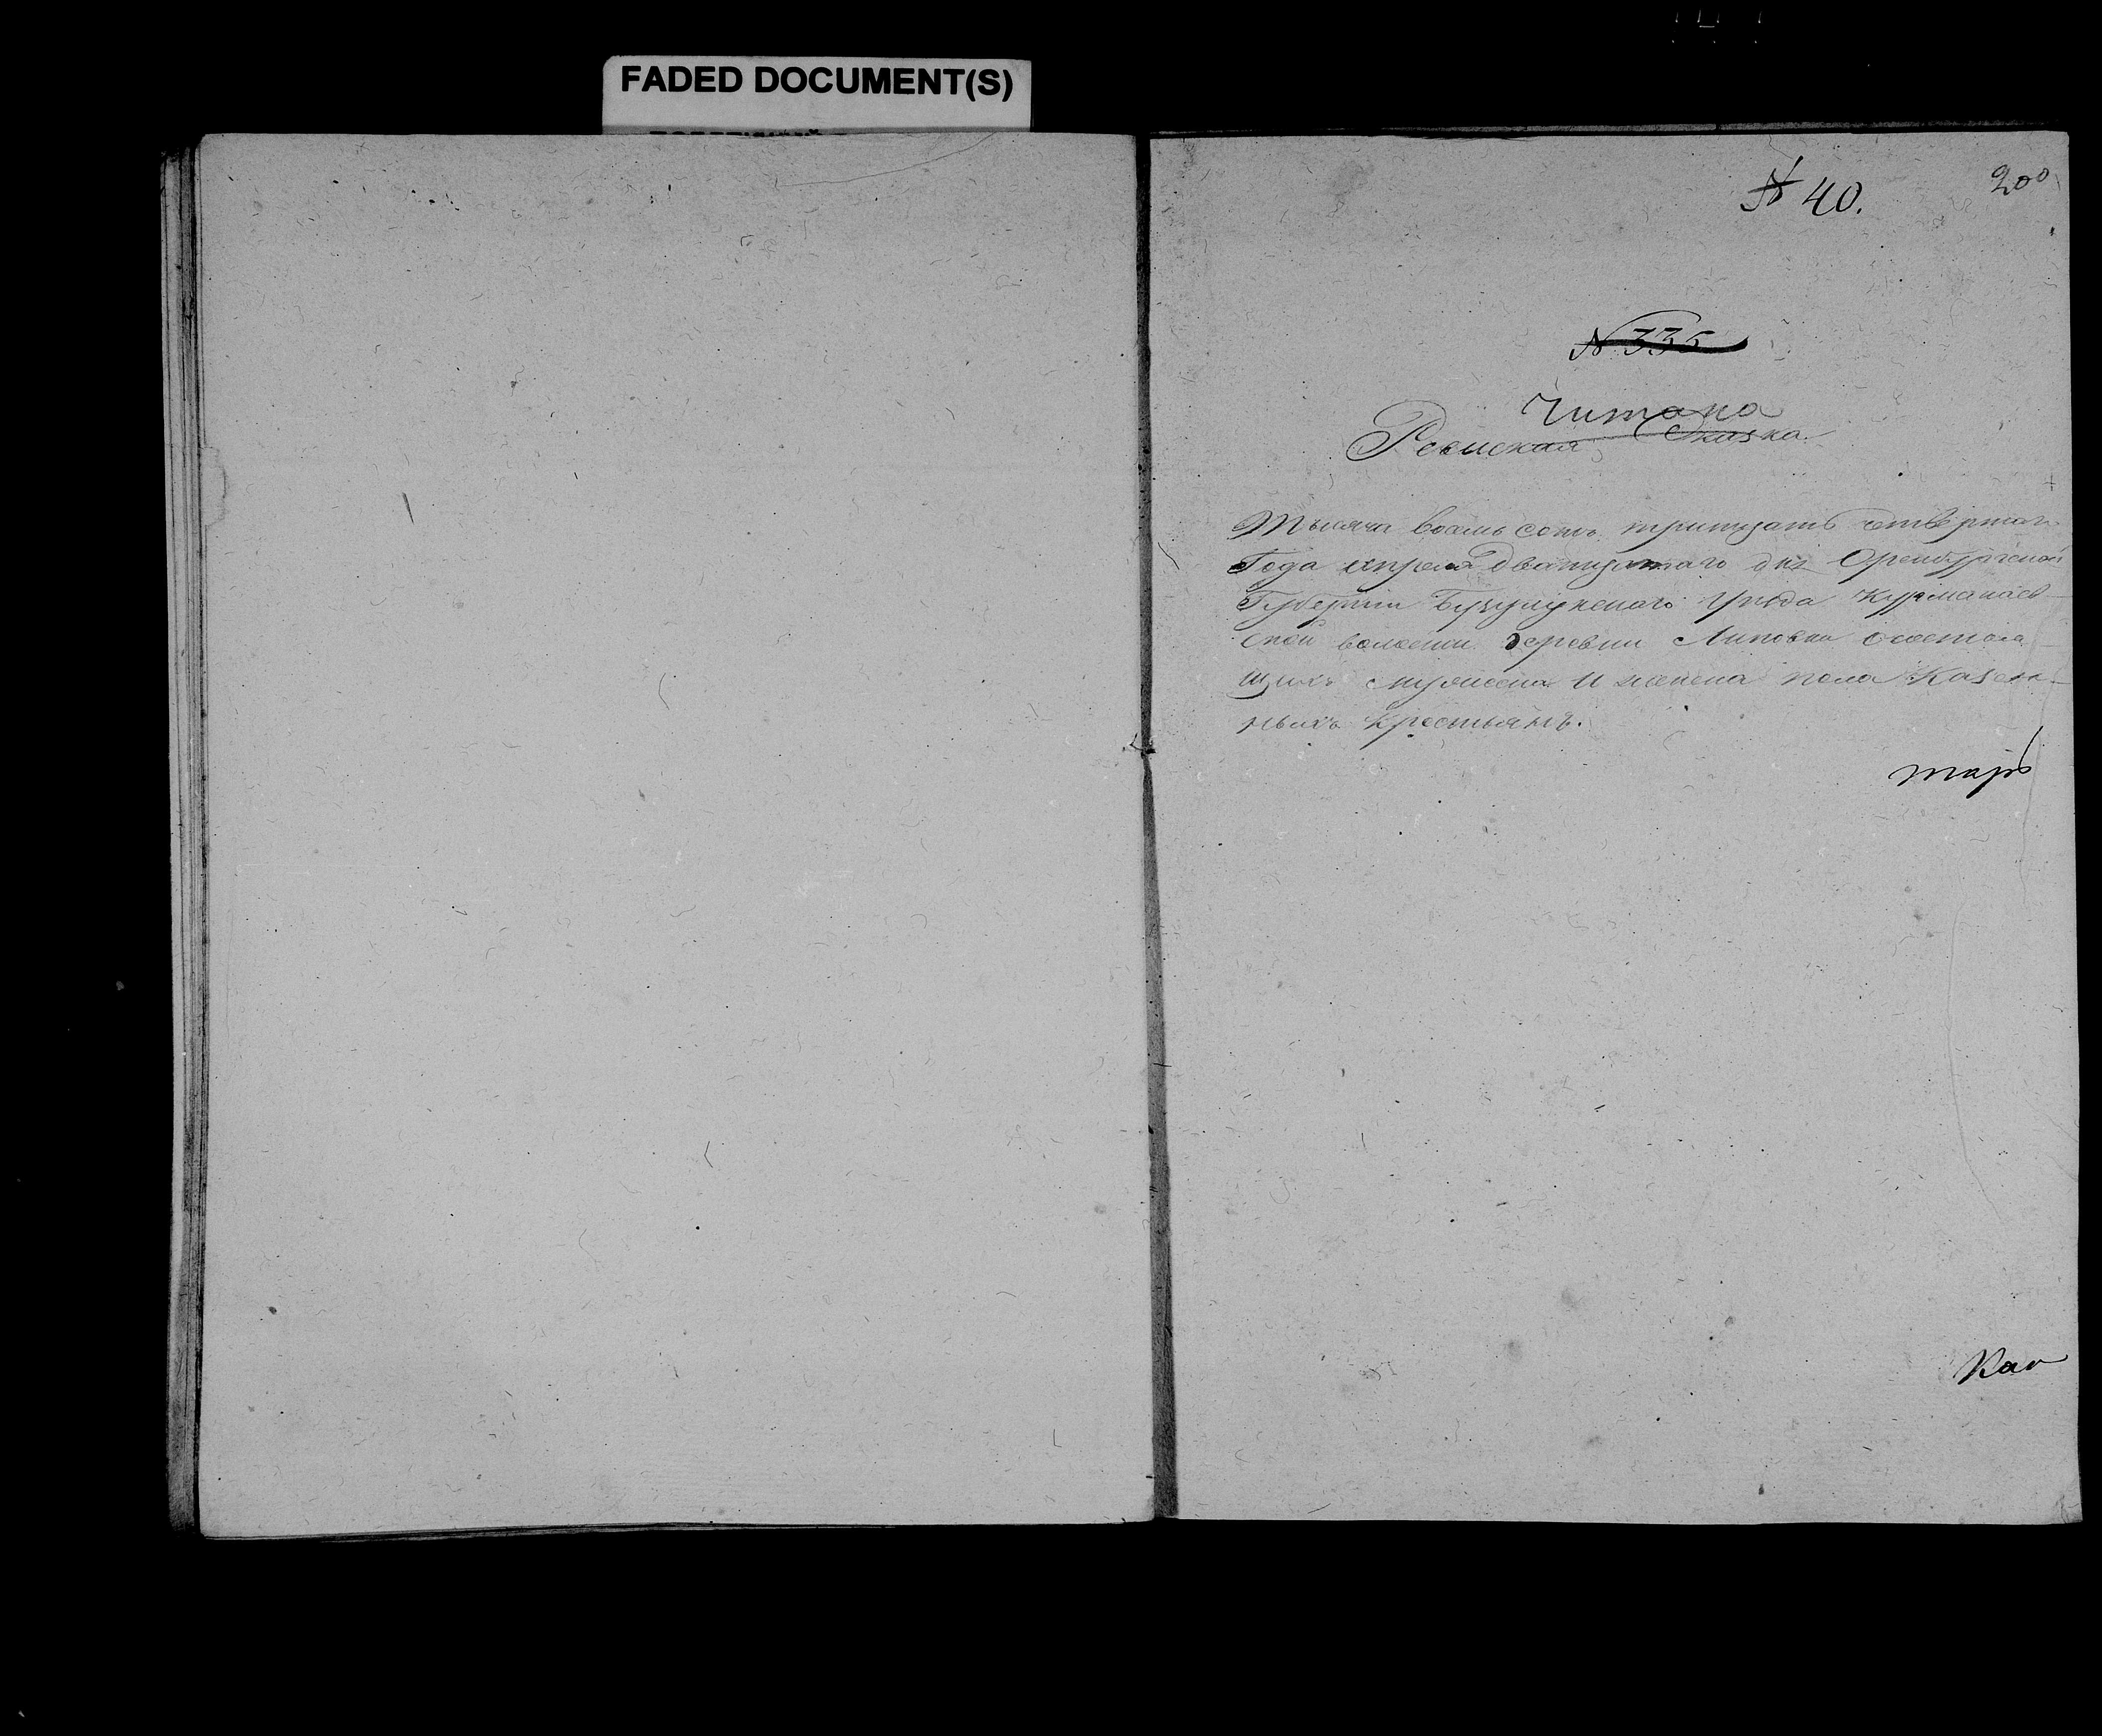 FADED DOCUMENT(S)
№ 40.
200
№ 335
Читана
Ревизская Сказка
Тысяча восемь сотъ тритцать четвертаго
Года апреля дватцатаго дня Оренбургской
Губернии Бузулукскаго уезда Курманаев-
ской волости деревни Липовки о состоя
щихъ мужеска и женска пола казен-
ныхъ крестьянъ.